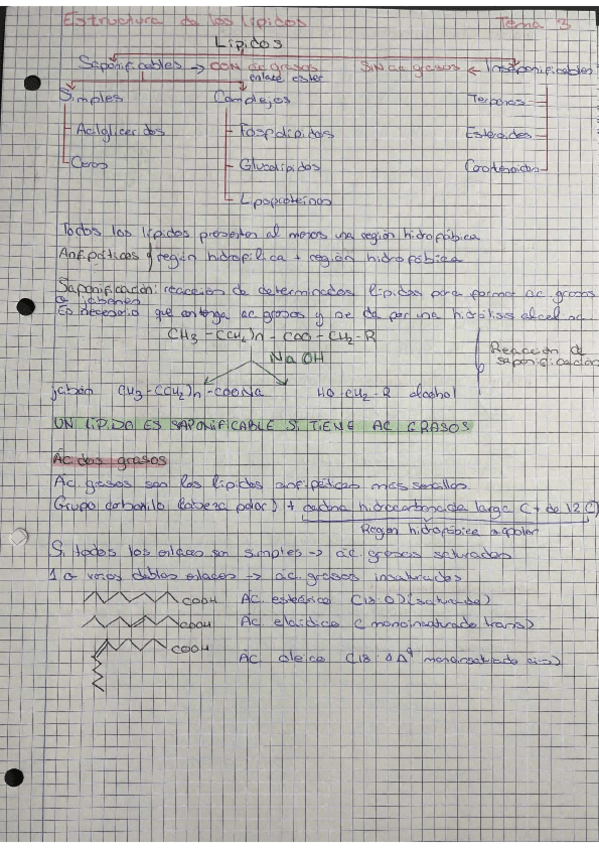 Estructura de los lípidos Tema 3
Lípidos
Saponificables → CON ác grasos SIN ác grasos ← Insaponificables
enlace ester
Simples Complejos Terpenos
Acilgliceridos Fosfolípidos Esteroides
Ceras Glucolípidos
Lipoproteínas
Todos los lípidos presentan al menos una región hidrofóbica
Anfipáticos región hidrofílica + región hidrofóbica
Saponificación: reacción de determinados lípidos para formar ác grasos
o jabones
Es necesario que contenga ác grasos y se da por una hidrólisis alcalina.
CH3 - (CH2)n - COO - CH2 - R
NaOH
Reacción de
saponificación
jabón CH3 - (CH2)n - COONa HO CH2 - R alcohol
UN LÍPIDO ES SAPONIFICABLE SI TIENE AC GRASOS
Ácidos grasos
Ác. grasos son los lípidos anfipáticos más sencillos
Grupo carbonilo (cabeza polar) + cadena hidrocarbonada larga (+ de 12 C)
Región hidrofóbica apolar
Si todos los enlaces son simples → ác. grasos saturados
1 o varios dobles enlaces → ác. grasos insaturados
COOH Ác. esteárico (18:0) (saturado)
COOH Ác elaídico (monoinsaturado trans)
COOH Ác oleico